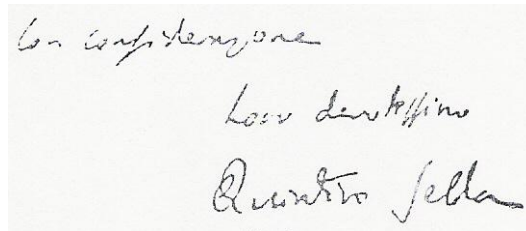 Con considerazione
Loro devotissimo
Quintino Sella